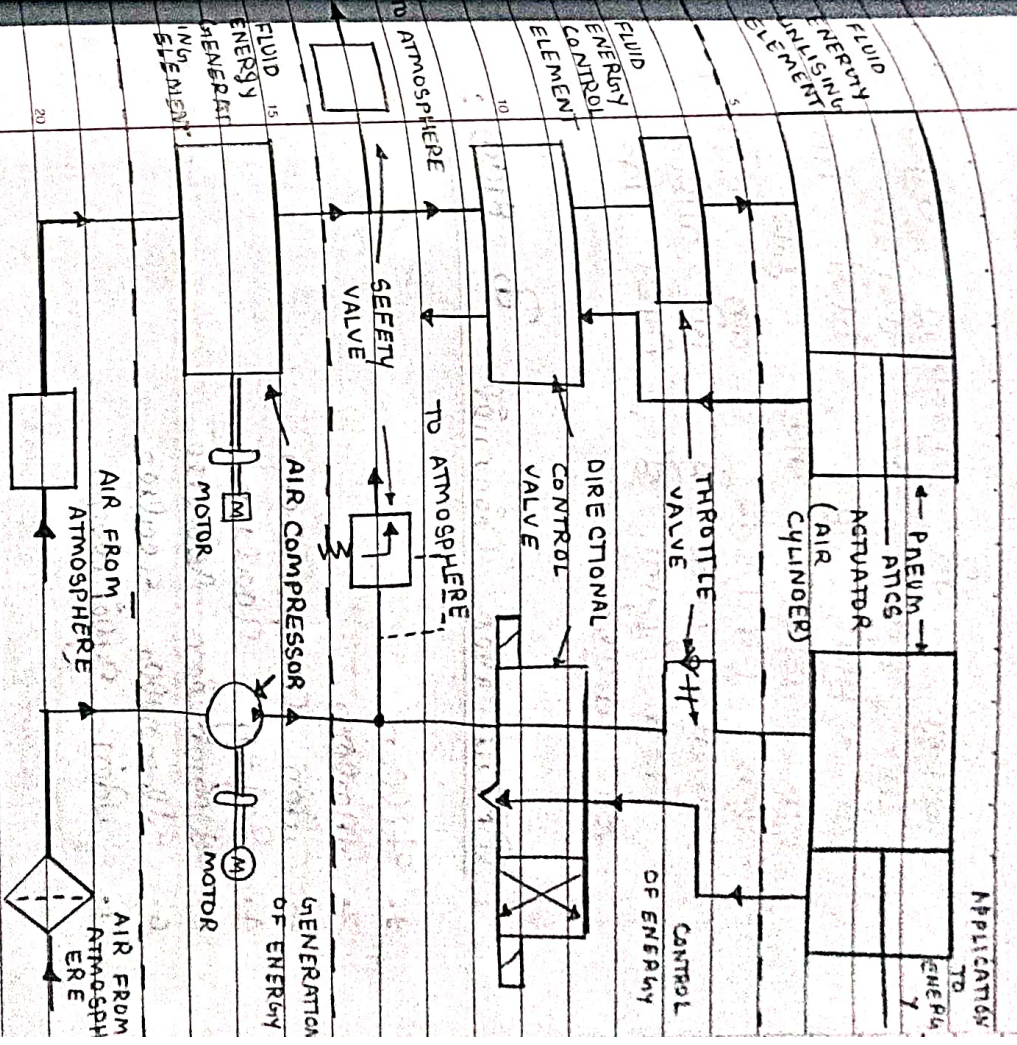 APPLICATION
TO
ENERG
Y
FLUID
ENERGY
UNLISING
ELEMENT
PNEUM
ATICS
ACTUATOR
(AIR
CYLINDER)
5
FLUID
ENERGY
CONTROL
ELEMENT
THROTTLE
VALVE
CONTROL
OF ENERGY
DIRECTIONAL
CONTROL
VALVE
10
TO ATMOSPHERE
TO ATMOSPHERE
SEFETY
VALVE
FLUID
ENERGY
GENERAT
ING
ELEMENT
15
AIR COMPRESSOR
GENERATION
OF ENERGY
M
MOTOR
M
MOTOR
AIR FROM
ATMOSPHERE
AIR FROM
ATMOSPH
ERE
20